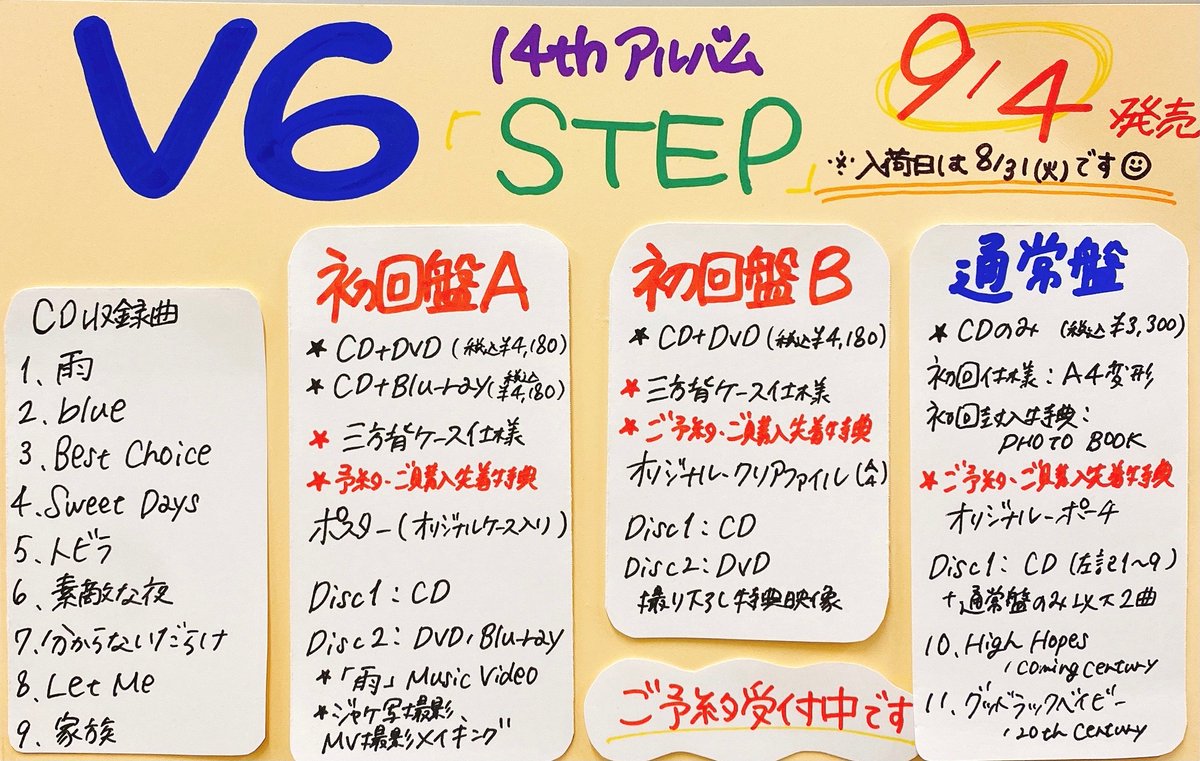 V6
14thアルバム
「STEP」
9/4発売
※入荷日は8/31(火)です
CD収録曲
1. 雨
2. blue
3. Best Choice
4. Sweet Days
5. トビラ
6. 素敵な夜
7. 分からないだらけ
8. Let Me
9. 家族
初回盤A
★ CD+DVD (税込¥4,180)
★ CD+Blu-ray (税込¥4,180)
★ 三方背ケース仕様
★ 予約・ご購入先着特典
ポスター(オリジナルケース入り)
Disc1: CD
Disc2: DVD, Blu-ray
★「雨」Music Video
★ジャケ写撮影、
MV撮影メイキング
初回盤B
★ CD+DVD (税込¥4,180)
★ 三方背ケース仕様
★ ご予約・ご購入先着特典
オリジナル・クリアファイル(A4)
Disc1: CD
Disc2: DVD
撮り下ろし特典映像
ご予約受付中です
通常盤
★ CDのみ (税込¥3,300)
初回仕様: A4変形
初回封入特典:
PHOTO BOOK
★ ご予約・ご購入先着特典
オリジナル・ポーチ
Disc1: CD (左記1〜9)
+通常盤のみ以下2曲
10. High Hopes
/Coming Century
11. グッドラックベイビー
/20th Century